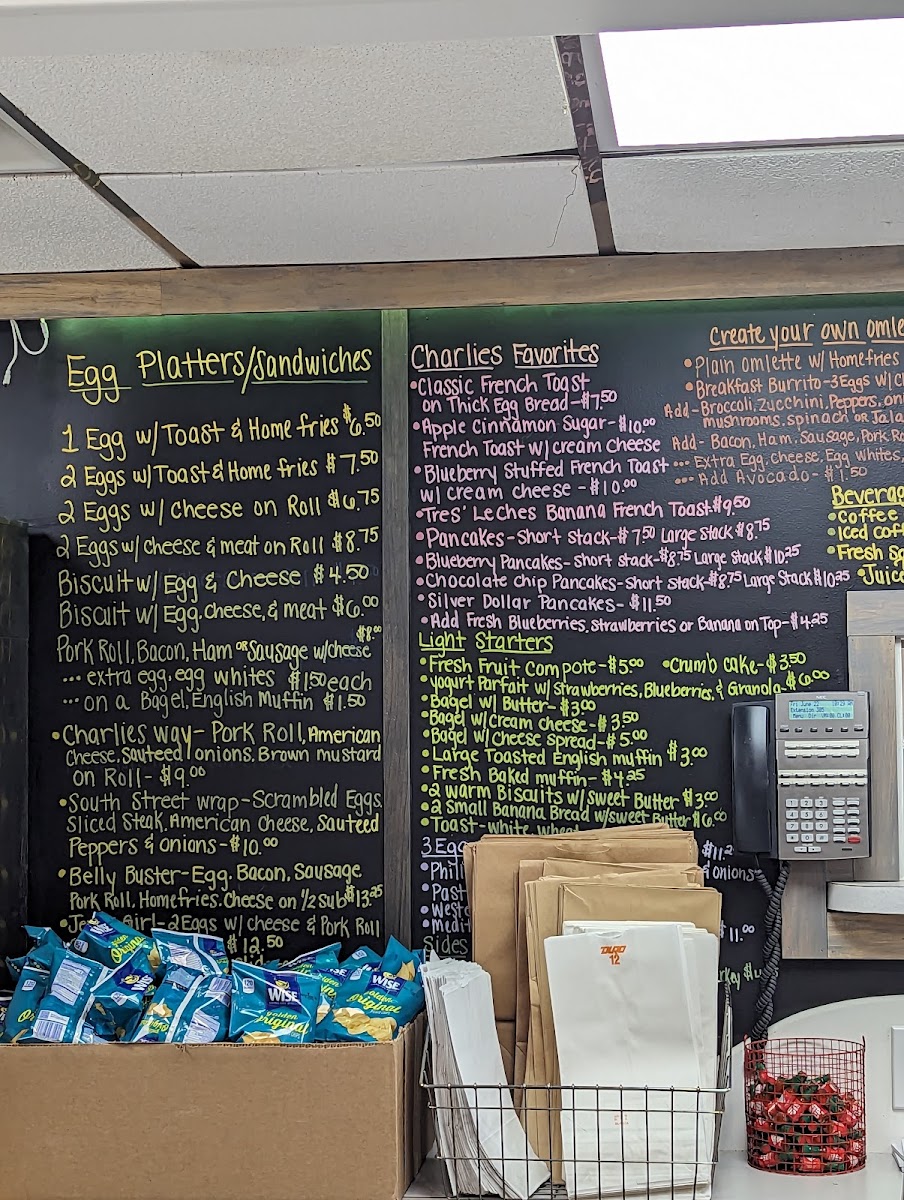 Egg Platters/Sandwiches
1 Egg w/Toast & Home fries $6.50
2 Eggs w/Toast & Home fries $7.50
2 Eggs w/ cheese on Roll $6.75
2 Eggs w/ cheese & meat on Roll $8.75
Biscuit w/ Egg & Cheese $4.50
Biscuit w/ Egg, cheese, & meat $6.00
Pork Roll, Bacon, Ham or Sausage w/cheese $8.00
... extra egg, egg whites $1.50 each
... on a Bagel, English Muffin $1.50
•Charlies way- Pork Roll, American
Cheese, Sauteed onions, Brown mustard
on Roll- $9.00
•South Street wrap-Scrambled Eggs,
Sliced Steak, American Cheese, Sauteed
Peppers & onions-$10.00
•Belly Buster-Egg, Bacon, Sausage
Pork Roll, Homefries, Cheese on 1/2 Sub $13.25
Girl-2 Eggs w/ cheese & Pork Roll
$12.50
Charlies Favorites
•Classic French Toast
on Thick Egg Bread-$7.50
•Apple Cinnamon Sugar-$10.00
French Toast w/ cream cheese
•Blueberry Stuffed French Toast
w/ cream cheese -$10.00
•Tres' Leches Banana French Toast $9.50
•Pancakes-Short Stack-$7.50 Large Stack $8.75
•Blueberry Pancakes-Short stack-$8.75 Large Stack $10.25
•Chocolate chip Pancakes-Short stack-$8.75 Large Stack $10.25
•Silver Dollar Pancakes- $11.50
•Add Fresh Blueberries, Strawberries or Banana on Top-$4.25
Light Starters
•Fresh Fruit Compote-$5.00 •Crumb cake-$3.50
•yogurt Parfait w/ Strawberries, Blueberries, & Granola-$6.00
•Bagel w/ Butter-$3.00
•Bagel w/ Cream cheese-$3.50
•Bagel w/ Cheese spread-$5.00
•Large Toasted English muffin $3.00
•Fresh Baked muffin-$4.25
•2 warm Biscuits w/ Sweet Butter $3.00
•2 Small Banana Bread w/sweet Butter $6.00
•Toast-white
3 Egg $11.2
•Phil & onions
•Past
•West
•Medit $11.00
Sides
Create your own omle
•Plain omlette w/ Homefries
•Breakfast Burrito-3 Eggs w/
Add-Broccoli, Zucchini, Peppers, oni
mushrooms, spinach or Jala
Add- Bacon, Ham, Sausage, Pork Ro
... Extra Egg, Cheese, Egg Whites,
... Add Avocado- $1.50
Beverag
•Coffee
•Iced coff
•Fresh Sq
•Juice
NEC
WISE
golden Original
WISE
golden Original
DURO
12